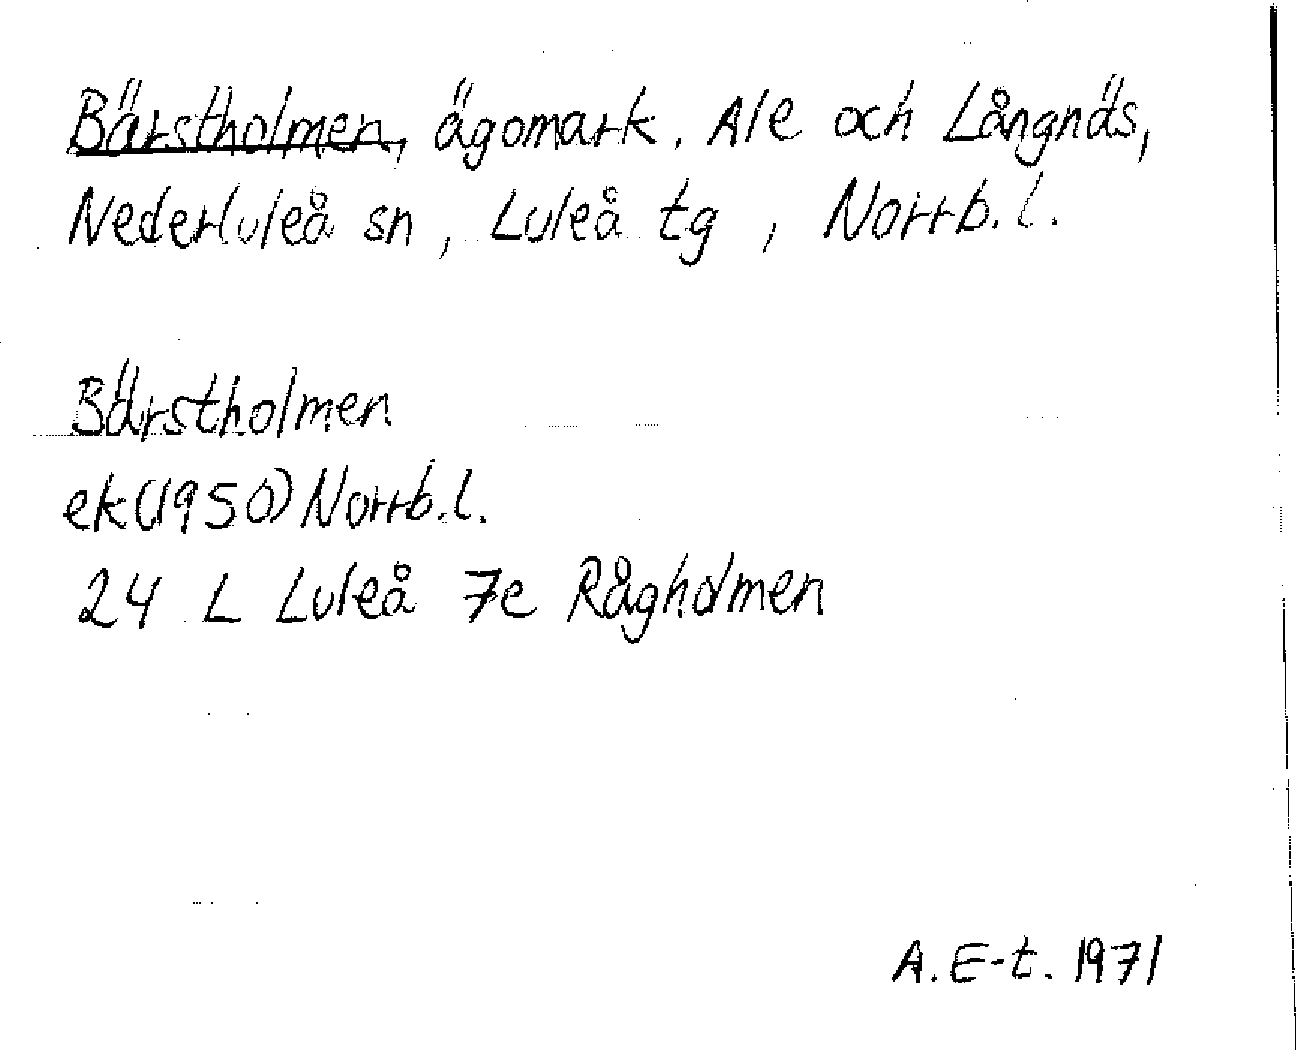 Bärstholmen, ägomark. Ale och Långnäs,
Nederluleå sn, Luleå tg, Norrb.l.
Bärstholmen
ek(1950) Norrb.l.
24 L Luleå 7e Rågholmen
A.E-t. 1971